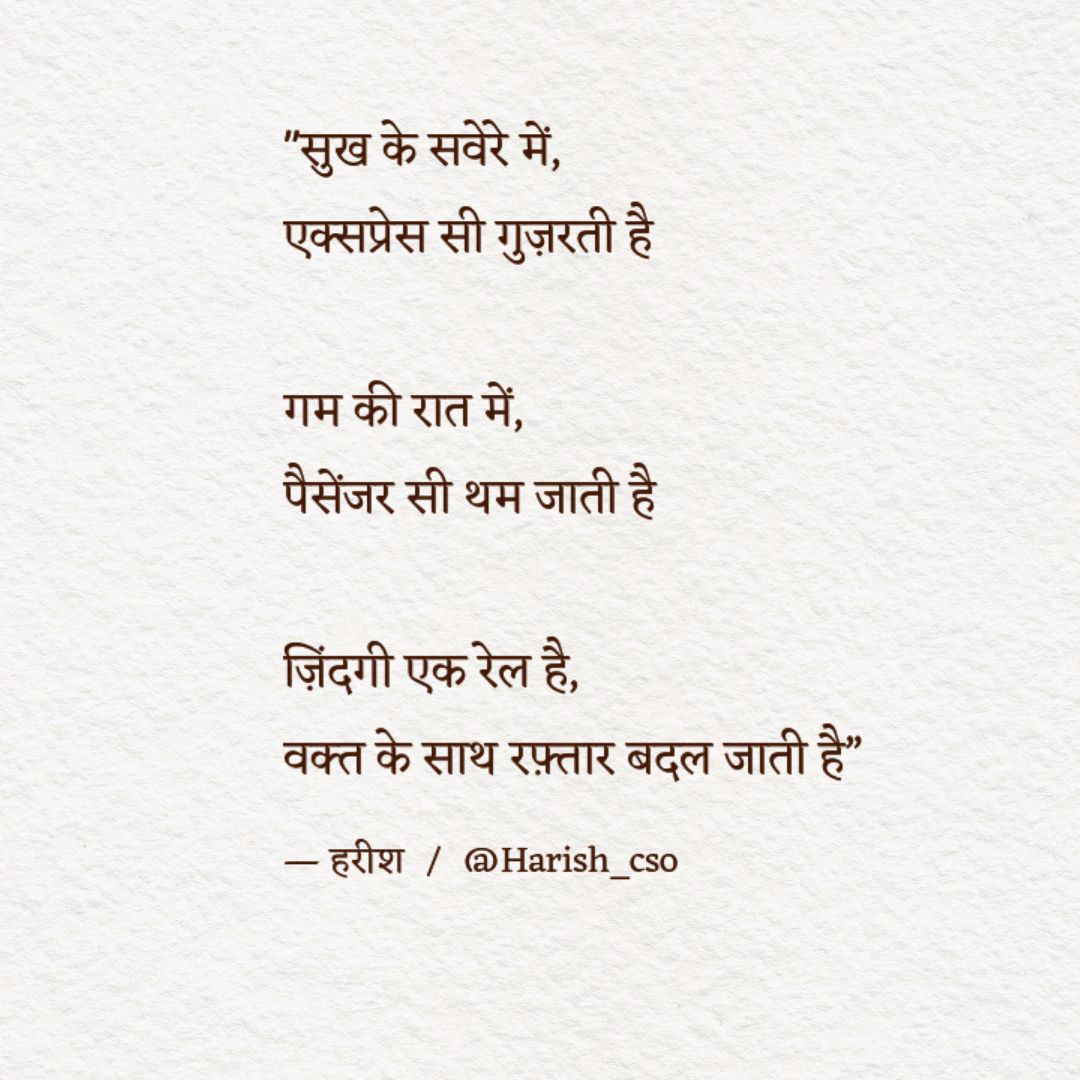 "सुख के सवेरे में,
एक्सप्रेस सी गुज़रती है
गम की रात में,
पैसेंजर सी थम जाती है
ज़िंदगी एक रेल है,
वक्त के साथ रफ़्तार बदल जाती है”
— हरीश / @Harish_cso